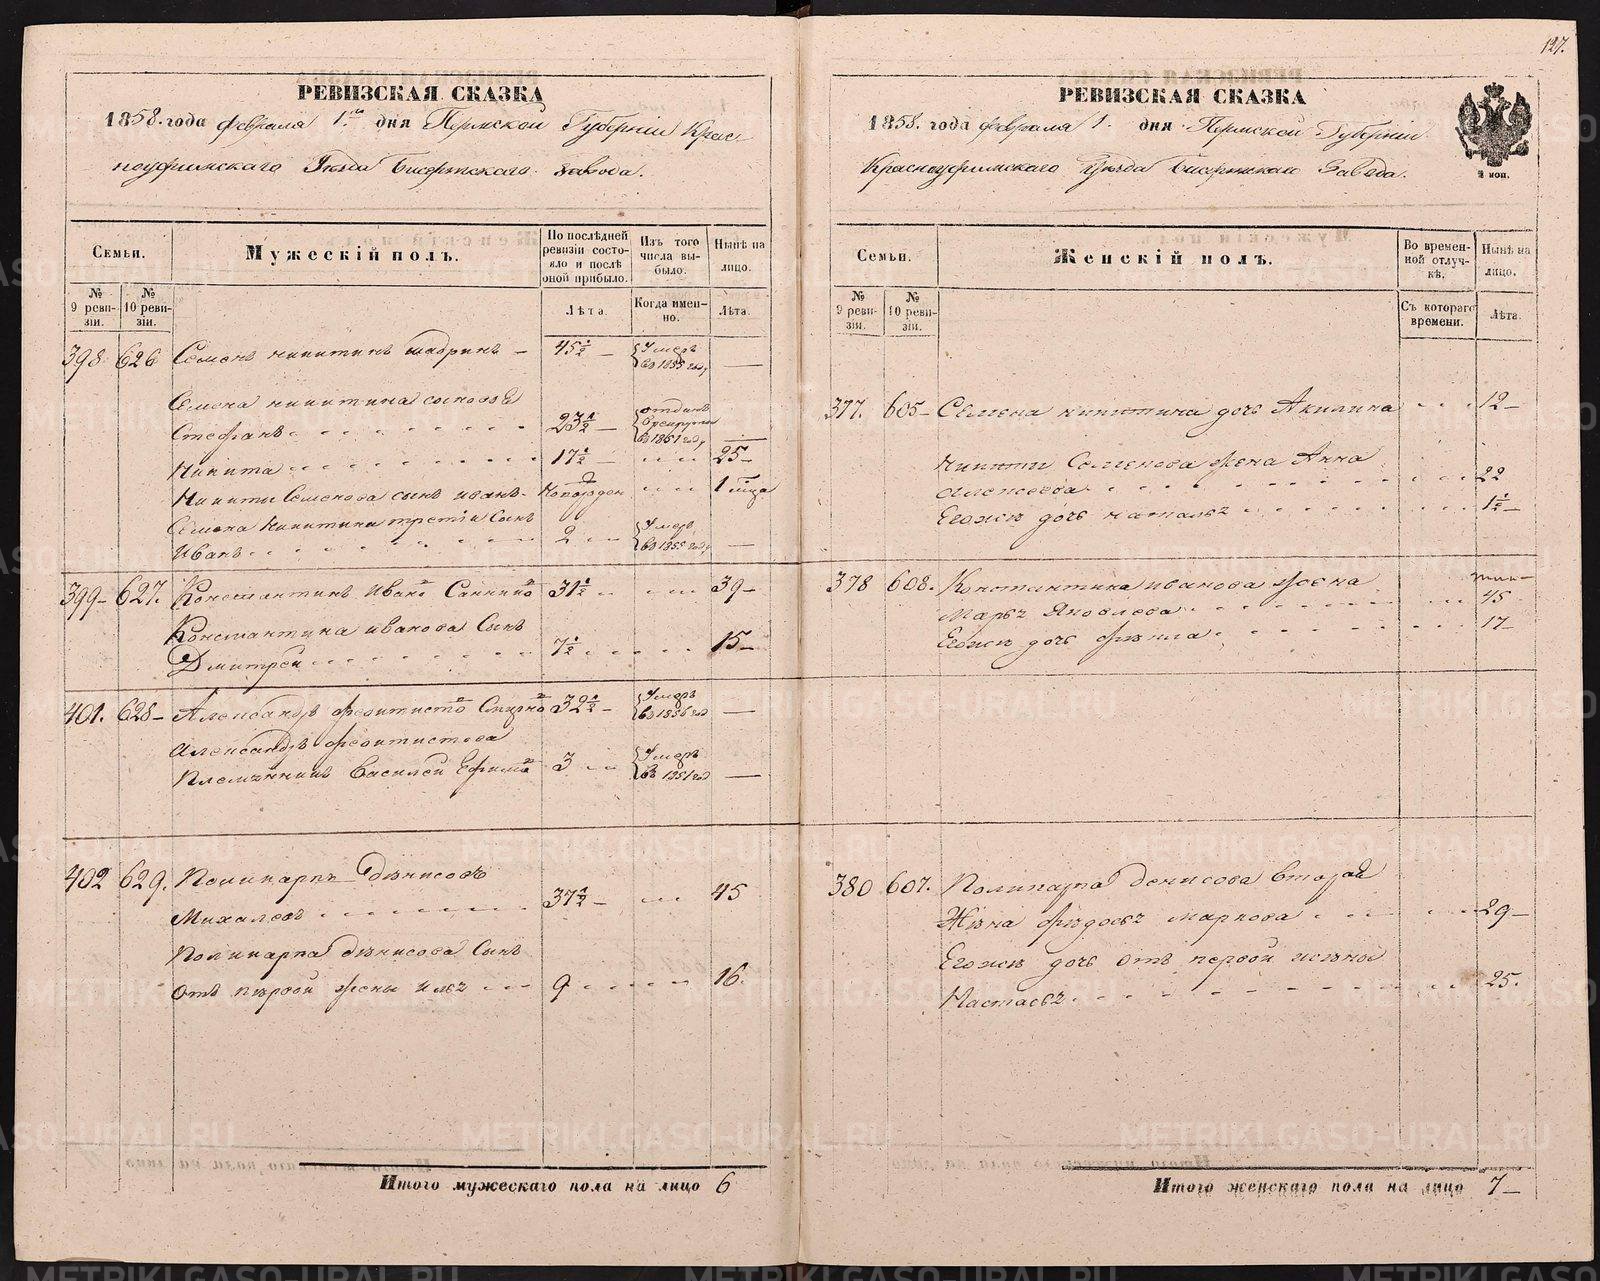 127.
РЕВИЗСКАЯ СКАЗКА
1858. года февраля 1го дня Пермской Губернiи Крас-
ноуфимскаго Уѣзда Бисертскаго завода.
Семьи.
Мужескiй полъ.
По послѣдней ревизiи состояло и послѣ оной прибыло.
Изъ того числа выбыло.
Нынѣ на лицо.
№ 9 ревизiи.
№ 10 ревизiи.
Лѣта.
Когда именно.
Лѣта.
398 626 Семенъ Никитинъ Шадринъ – 45½ – Умеръ въ 1855 году —
Семена Никитина сыновья
Стефанъ 23½ – отданъ в рекруты въ 1851 году —
Никита 17½ – 25–
Никиты Семенова сынъ Иванъ – Новорожден 1 мѣца
Семена Никитина третiй Сынъ
Иванъ 2 Умеръ въ 1855 году —
399– 627. Константинъ Ивано Саннико 31½ 39–
Константина Иванова Сынъ
Дмитрей 7½ 15–
401. 628– Александръ Феоктисто Смирно 32½ – Умеръ въ 1856 год —
Александра Феоктистова
Племянникъ Василей Ефимо 3 Умеръ въ 1851 год —
402 629. Поликарпъ Денисовъ
Михалевъ 37½ – 45
Поликарпа Денисова Сынъ
отъ первой жены Илья 9 16.
Итого мужескаго пола на лицо 6
РЕВИЗСКАЯ СКАЗКА
1858. года февраля 1. дня Пермской Губернiи
Красноуфимскаго Уѣзда Бисертскаго Завода.
2 коп.
Семьи.
Женскiй полъ.
Во временной отлучкѣ.
Нынѣ на лицо.
№ 9 ревизiи.
№ 10 ревизiи.
Съ котораго времени.
Лѣта.
377. 605– Семена Никитина дочь Акилина 12–
Никиты Семенова жена Анна
Алексеева 22
Егожъ дочь Наталья 1½–
378 608. Константина Иванова жена
Марья Яковлева 45
Егожъ дочь 17–
380 607. Поликарпа Денисова вторая
Жена Федосья Маркова 29–
Егожъ дочь отъ первой жены
Настасья 25.
Итого женскаго пола на лицо 7–
METRIKI.GASO-URAL.RU